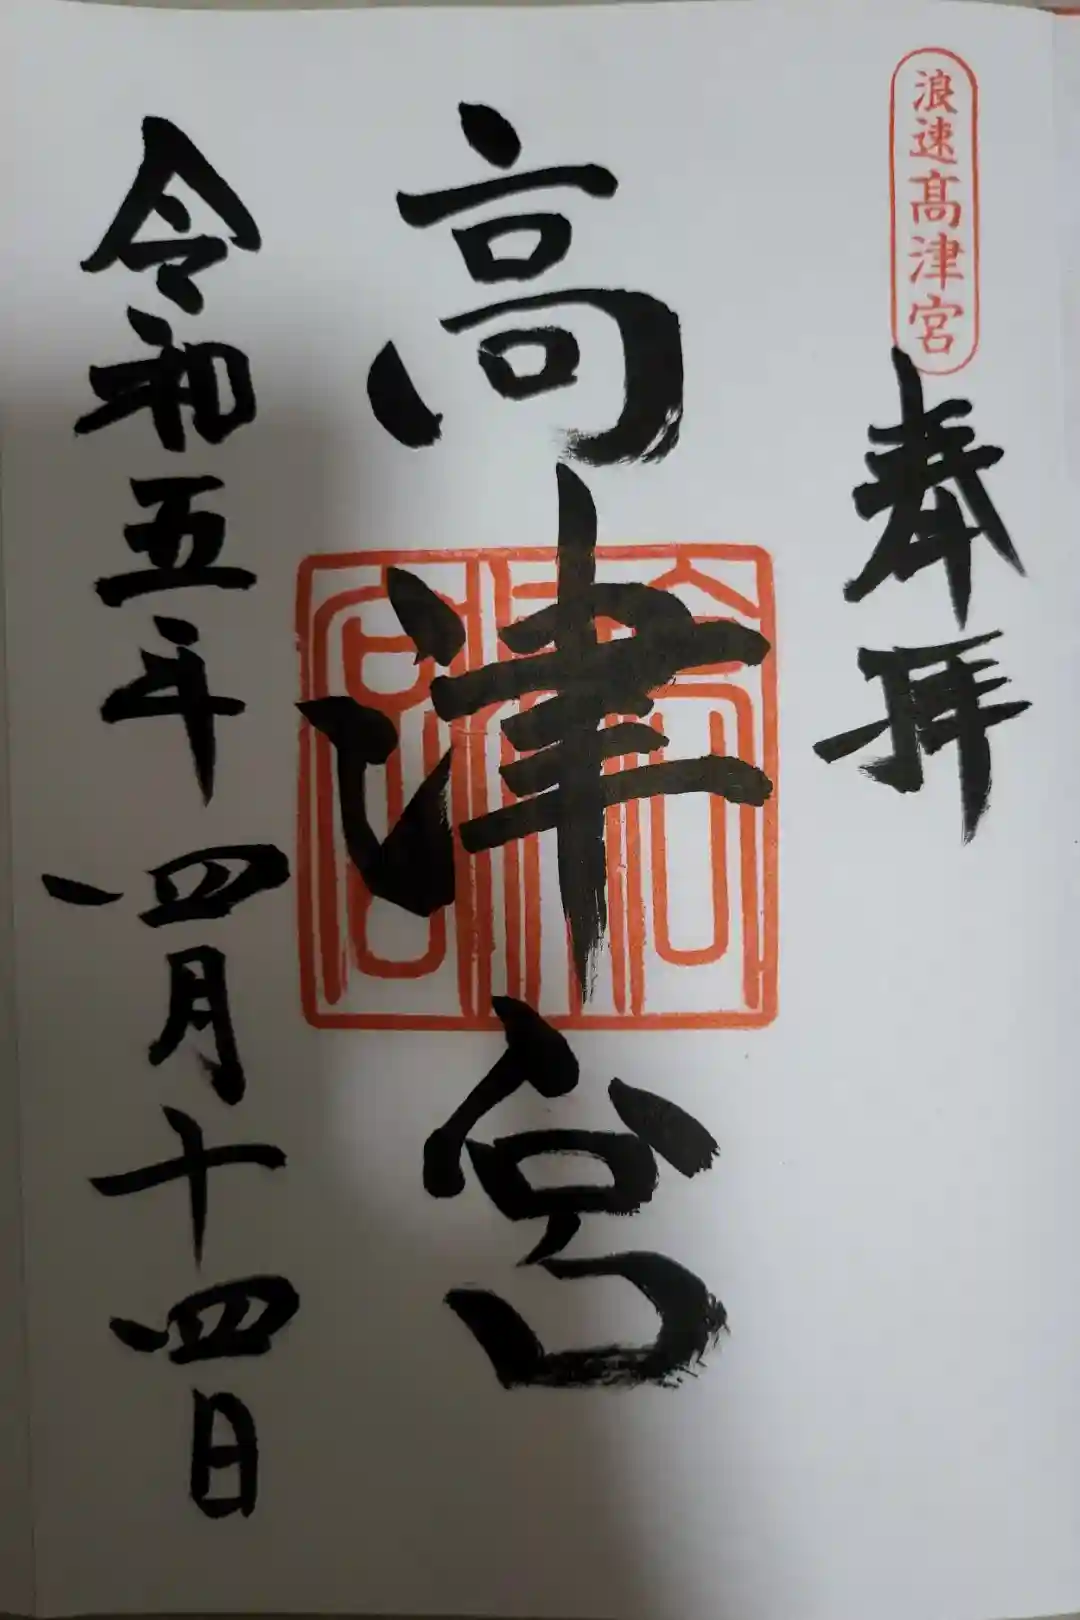 浪速髙津宮
奉拝
高津宮
令和五年四月十四日